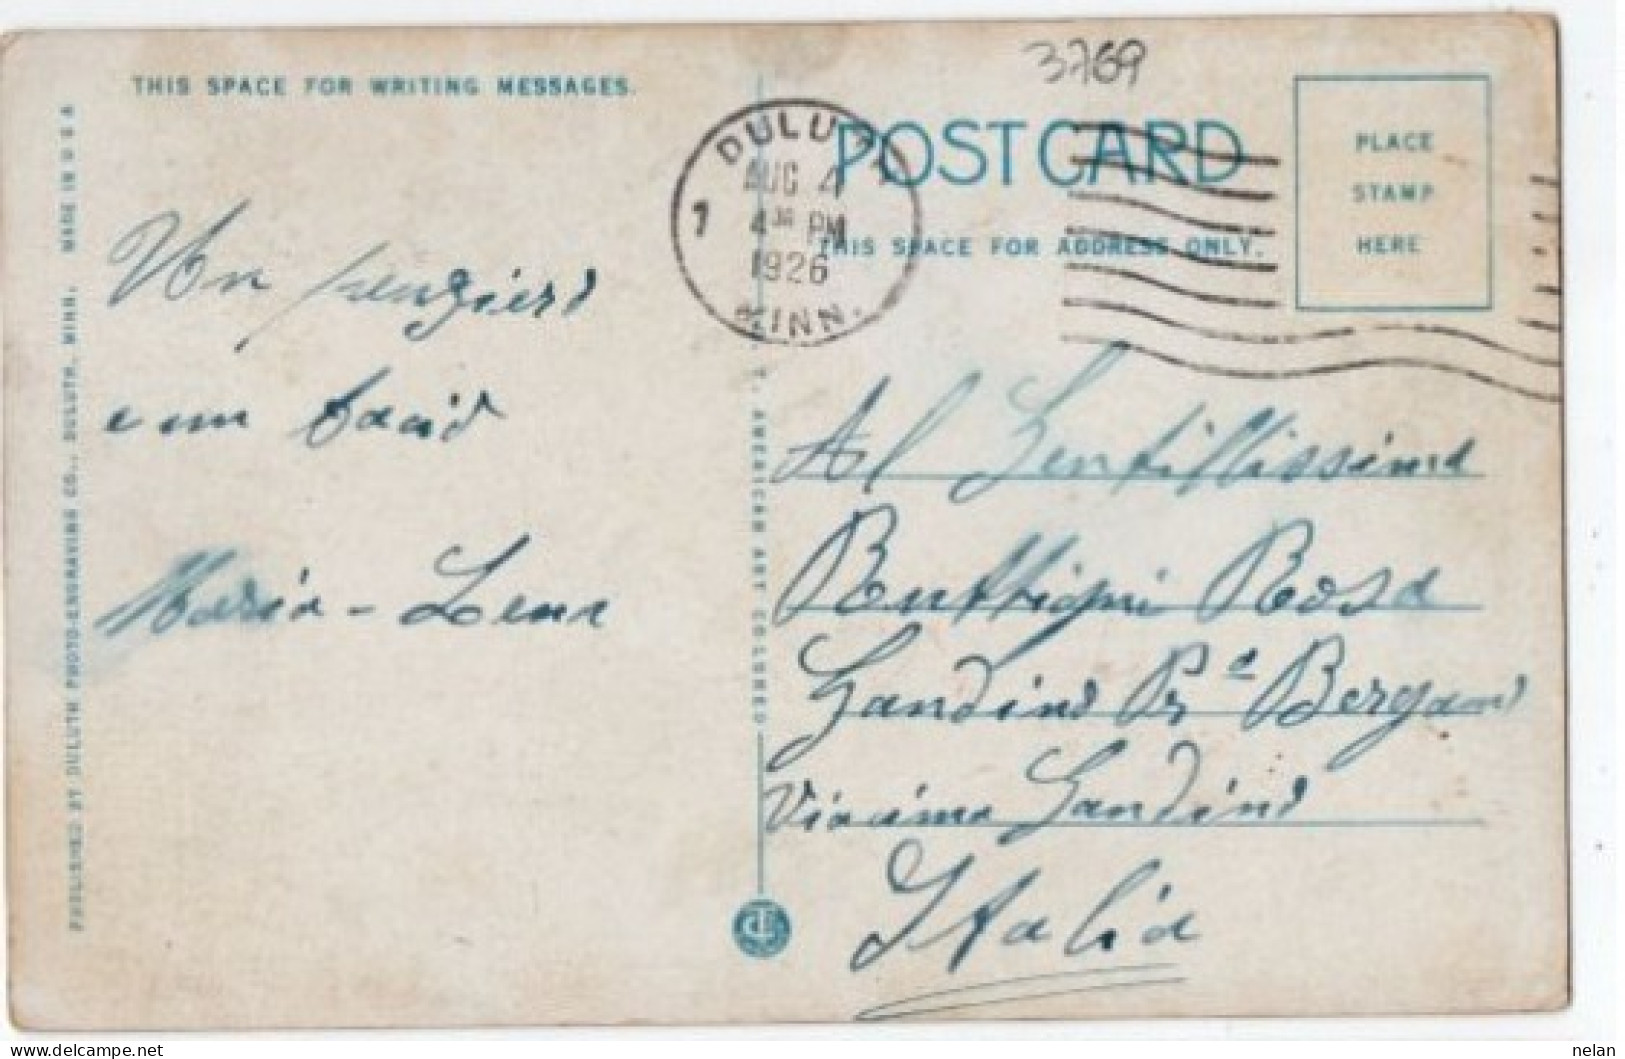 THIS SPACE FOR WRITING MESSAGES.
3769
POST CARD
PLACE
STAMP
HERE
THIS SPACE FOR ADDRESS ONLY.
DULUTH
AUG 4
4 30 PM
1926
MINN.
1
Un pensiero
e un bacio
Maria - Lena
Al Gentilissima
Rosa
Gandino Pr a Bergamo
Gandino
Italia
PUBLISHED BY DULUTH PHOTO-ENGRAVING CO., DULUTH, MINN. MADE IN U S A
C. T. AMERICAN ART COLORED
nelan
delcampe.net